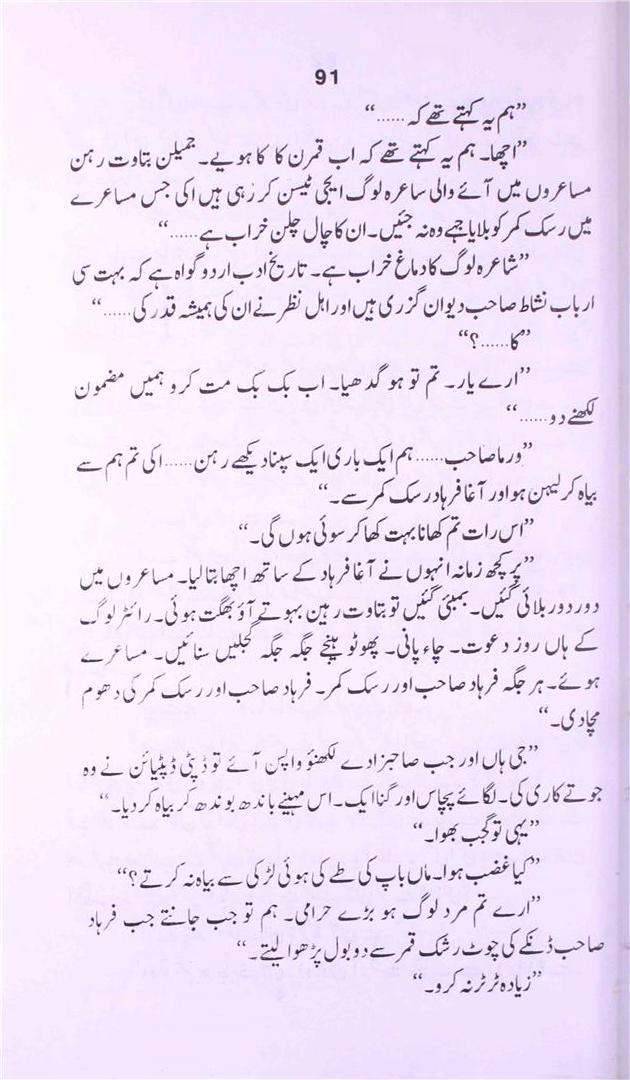 91
”ہم یہ کہتے تھے کہ......“
”اچھا۔ ہم یہ کہتے تھے کہ اب قمرن کا کا ہویے۔ جمیلن بتاوت رہن
مساعروں میں آئے والی ساعرہ لوگ ایجی ٹیسن کر رہی ہیں اکی جس مساعرے
میں رسک کمر کو بلایا جہے وہ نہ جئیں۔ ان کا چال چلن خراب ہے......“
”شاعرہ لوگ کا دماغ خراب ہے۔ تاریخ ادب اردو گواہ ہے کہ بہت سی
ارباب نشاط صاحب دیوان گزری ہیں اور اہل نظر نے ان کی ہمیشہ قدر کی......“
”کا......؟“
”ارے یار۔ تم تو ہو گدھیا۔ اب بک بک مت کرو ہمیں مضمون
لکھنے دو......“
”ورما صاحب...... ہم ایک باری ایک سپنا دیکھے رہن...... اکی تم ہم سے
بیاہ کر لیہن ہو اور آغا فرہاد رسک کمر سے۔“
”اس رات تم کھانا بہت کھا کر سوئی ہوں گی۔“
”پر کچھ زمانہ انہوں نے آغا فرہاد کے ساتھ اچھا بتا لیا۔ مساعروں میں
دور دور بلائی گئیں۔ بمبئی گئیں تو بتاوت رہین بہوتے آؤ بھگت ہوئی۔ رائٹر لوگ
کے ہاں روز دعوت۔ چاء پانی۔ پھوٹو ہنچے جگہ جگہ گجلیں سنائیں۔ مساعرے
ہوئے۔ ہر جگہ فرہاد صاحب اور رسک کمر۔ فرہاد صاحب اور رسک کمر کی دھوم
مچا دی۔“
”جی ہاں اور جب صاحبزادے لکھنؤ واپس آئے تو ڈپٹی ڈپٹیائن نے وہ
جوتے کاری کی۔ لگائے پچاس اور گنا ایک۔ اس مہینے باندھ بوندھ کر بیاہ کر دیا۔“
”یہی تو گجب بھوا۔“
”کیا غضب ہوا۔ ماں باپ کی طے کی ہوئی لڑکی سے بیاہ نہ کرتے؟“
”ارے تم مرد لوگ ہو بڑے حرامی۔ ہم تو جب جانتے جب فرہاد
صاحب ڈنکے کی چوٹ رشک قمر سے دو بول پڑھوا لیتے۔“
”زیادہ ٹر ٹر نہ کرو۔“